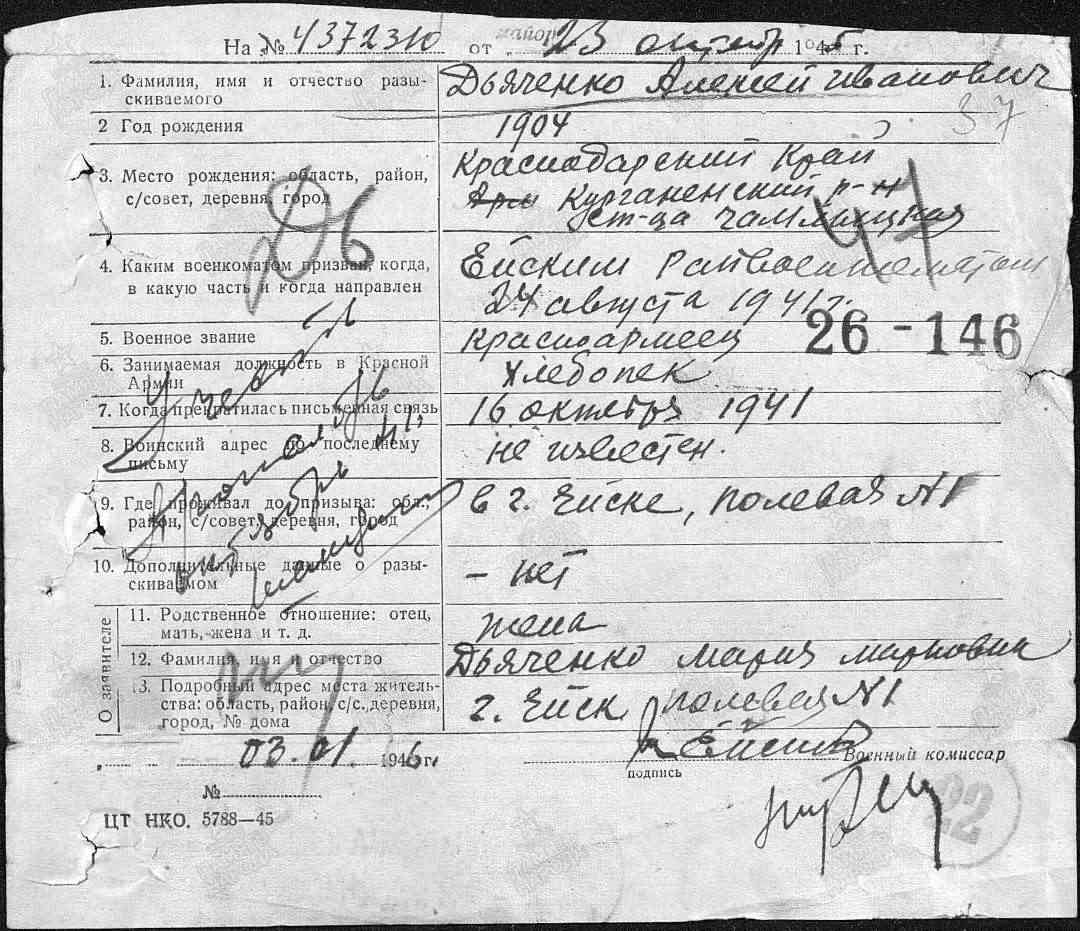 На № 4372310 от 23 октябр 1945 г.
1. Фамилия, имя и отчество разы-
скиваемого
Дьяченко Алексей Иванович
37
2 Год рождения
1904
3. Место рождения: область, район,
с/совет, деревня, город
Краснодарский Край
Курганенский р-н
ст-ца Чамлыцкая
47
Дь
4. Каким военкоматом призван, когда,
в какую часть и когда направлен
Ейским Райвоенкоматом
24 августа 1941 г.
5. Военное звание
Красноармеец
26-146
6. Занимаемая должность в Красной
Армии
Хлебопек
7. Когда прекратилась письменная связь
16 октября 1941
8. Воинский адрес по последнему
письму
не известен.
9. Где проживал до призыва: обл.,
район, с/совет, деревня, город
в г. Ейске, полевая №1
10. Дополнительные данные о разы-
скиваемом
- нет
О заявителе
11. Родственное отношение: отец,
мать, жена и т. д.
жена
12. Фамилия, имя и отчество
Дьяченко Мария Марковна
13. Подробный адрес места житель-
ства: область, район, с/с., деревня,
город, № дома
г. Ейск полевая №1
03.01. 1946 г.
Военный комиссар
подпись
№
ЦТ НКО. 5788—45
22